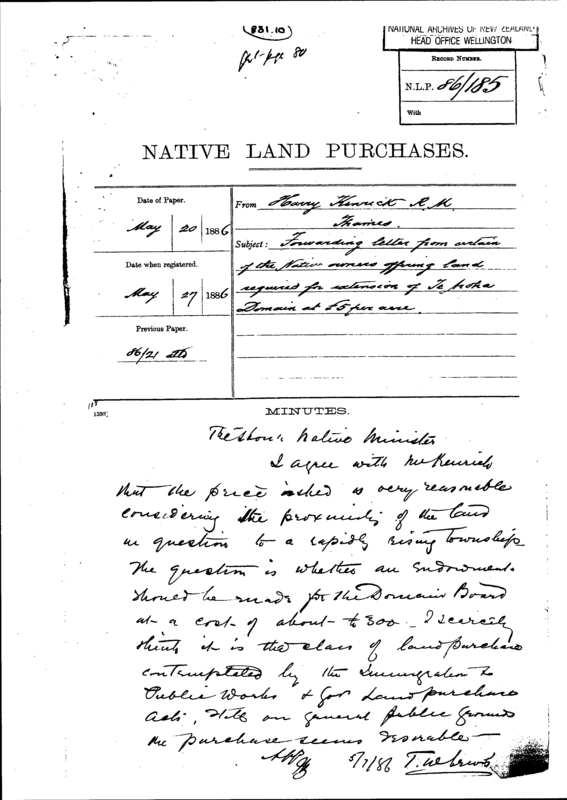 831.10
NATIONAL ARCHIVES OF NEW ZEALAND
HEAD OFFICE WELLINGTON
RECORD NUMBER.
N.L.P. 86/185
With
NATIVE LAND PURCHASES.
Date of Paper.
May 20 1886
Date when registered.
May 27 1886
Previous Paper.
86/21
From Harry Kenrick R.M.
Thames.
Subject: Forwarding letter from certain
of the Native owners offering land
required for extension of Te Aroha
Domain at £5 per acre.
MINUTES.
The Hon. Native Minister
I agree with Mr Kenrick
that the price asked is very reasonable
considering the proximity of the land
in question to a rapidly rising township
The question is whether an Endowment
should be made for the Domain Board
at a cost of about £300. I scarcely
think it is the class of land purchase
contemplated by the Immigration &
Public Works & Gov Land purchase
Acts, Still on general public grounds
the purchase seems desirable
5/7/86 T. W. Lewis